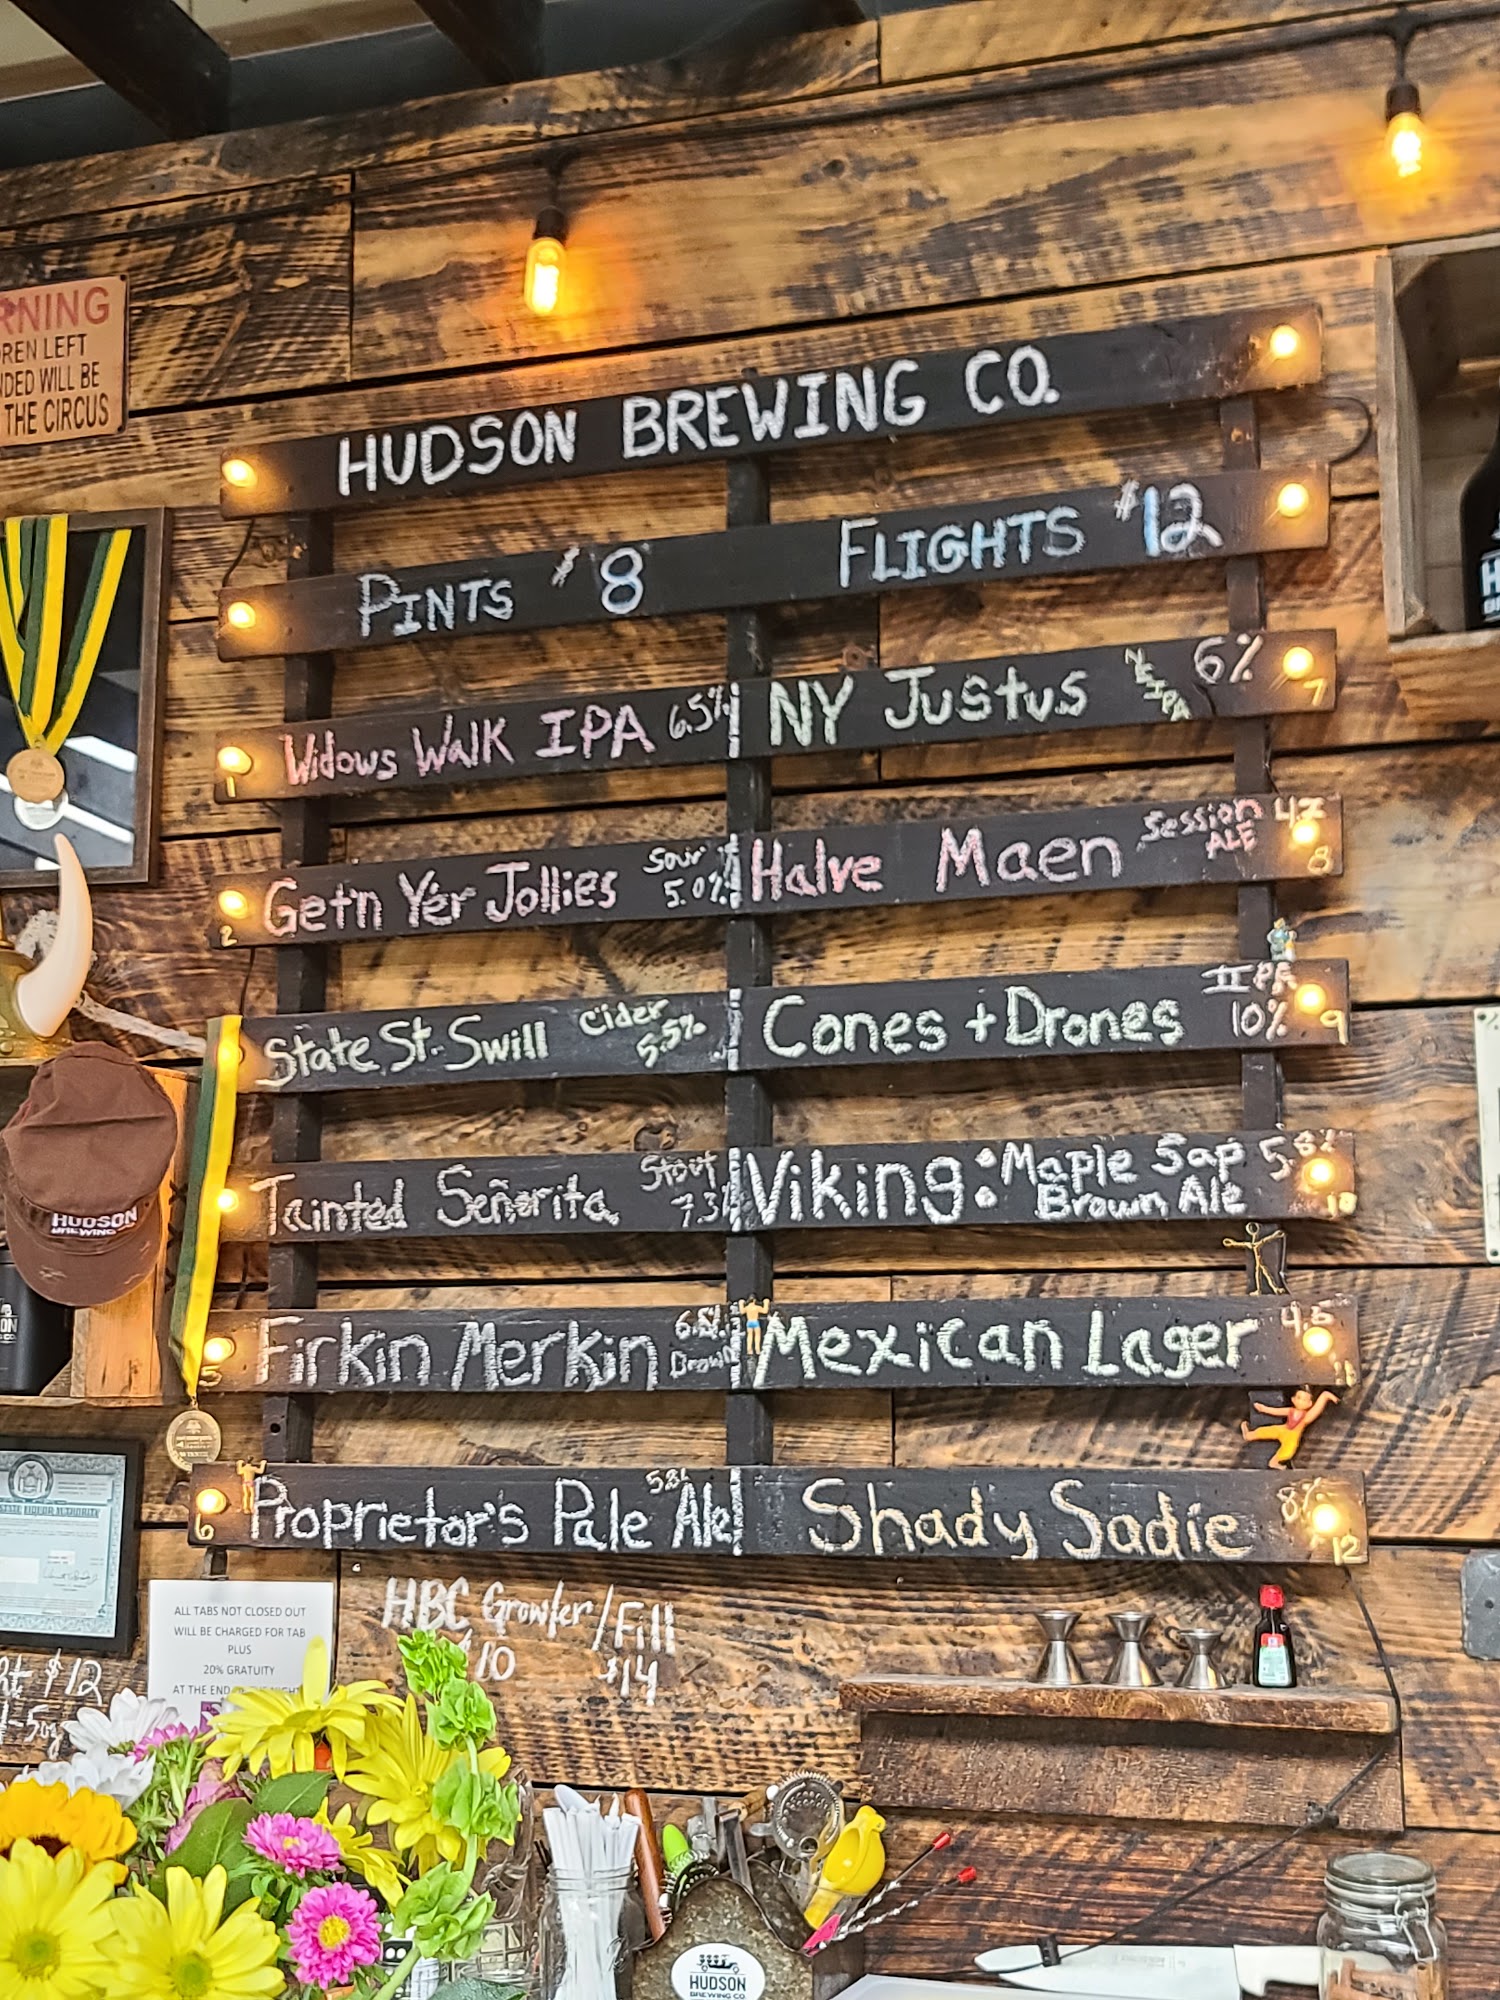 RNING
REN LEFT
NDED WILL BE
THE CIRCUS
HUDSON BREWING CO.
PINTS $8 FLIGHTS $12
Widows Walk IPA 6.5%
1
NY Justus NEIPA 6%
7
Get'n Yer Jollies Sour 5.0%
2
Halve Maen Session ALE 4%
8
State St. Swill Cider 5.5%
Cones + Drones IIPA 10%
9
Tainted Señorita Stout 7.3
Viking: Maple Sap Brown Ale 5.8%
10
Firkin Merkin Brown
5
Mexican Lager 4.5
11
Proprietor's Pale Ale 5.8%
6
Shady Sadie 8%
12
HUDSON
BREWING
ALL TABS NOT CLOSED OUT
WILL BE CHARGED FOR TAB
PLUS
20% GRATUITY
AT THE END OF THE NIGHT
HBC Growler / Fill
$10 $14
$12
HUDSON
BREWING CO.